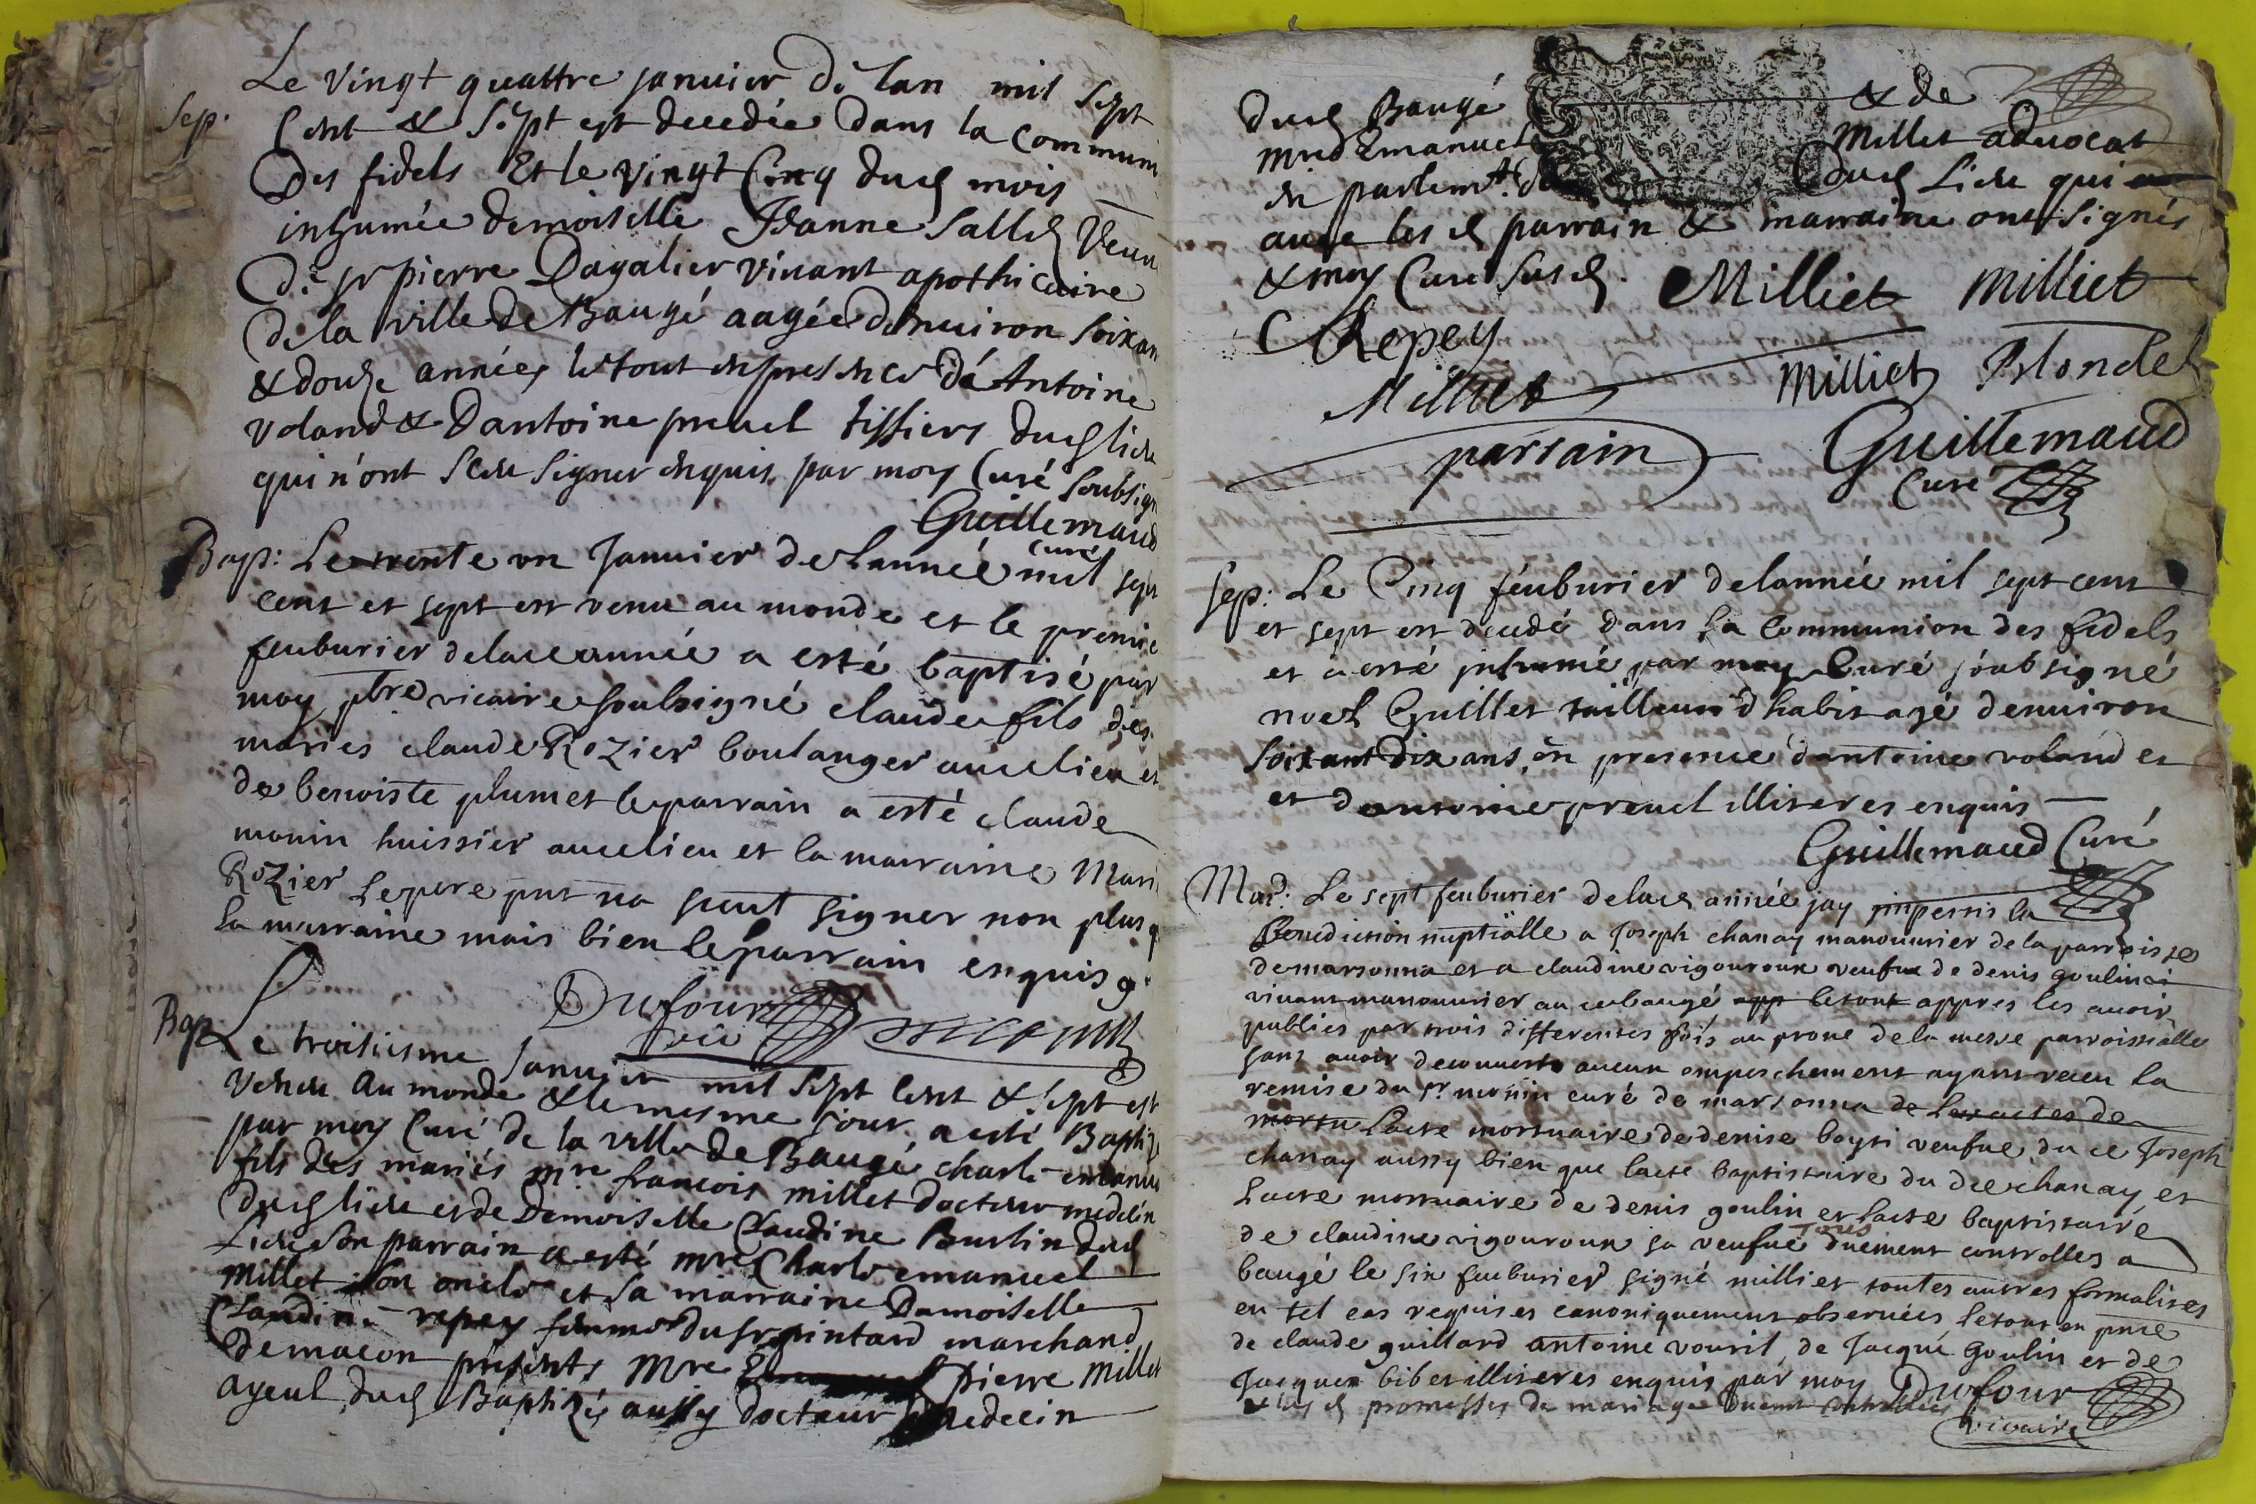 Le vingt quattre janvier de lan mil sept
Sep.
Cent & sept est decedée dans la Communi
Des fidels Et le vingt Cinq dud mois
inhumée demoiselle Jeanne Sallet Veuu
De sr pierre Dagalier vivant apothicaire
De la ville de Baugé aagée denuiron soixan
& douze années le tout en presence de Antoine
Voland & Dantoine preuel tissiers dud lieu
qui n'ont sceu signer enquis par moy Curé soubsign
Guillemaud
curé
Bap: Le trente un Januier de lannée mil sept
cent et sept est venu au monde et le premie
feuburier de lad année a esté baptisé par
moy pbre vicaire soubsigné claude fils des
maries claude Rozier boulanger audelieu et
de benoiste plumet le parrain a esté claude
monin huissier audelieu et la marraine Mari
Rozier le pere pnt na sceut signer non plus q
la marraine mais bien le parrain enquis
Dufour
vic
Bap
Le troisiesme Januier mil sept cent & sept est
Venu au monde & le mesme jour a esté Baptiz
par moy Curé de la ville de Baugé charle emanu
fils des mariés mre francois millet docteur medecin
dud lieu et de Demoiselle Claudine Burlin dud
Lieu Son parrain a esté mre Charle emanuel
millet son oncle et sa marraine Damoiselle
Claudine repey femme du sr pintard marchand
De macon presents Mre Pierre Millet
ayeul dud Baptizé aussy docteur medecin
dud Baugé & de
mred Emanuel Millet aduocat
en parlemt. de dud Lieu qui
auec les d parrain & marraine ont signés
& moy Curé susd.
Milliet milliet
C Repey
Milliet
Milliet Blondel
parrain
Guillemaud
Curé
Sep: Le Cinq feuburier de lannée mil sept cent
et sept est decedé dans la Communion des fidels
et a esté inhumé par moy Curé soubsigné
noel Guillet tailleur dhabit agé denuiron
soixant dix ans en presence dantoine voland et
et dantoine preuel illiteres enquis
Guillemaud Curé
Mar: Le sept feuburier de lad année jay imperti la
Benediction nuptialle a Joseph chanay manouurier de la parroisse
de marsonna et a claudine vigouroux veufue de denis goulin
viuant manouurier au ce baugé app le tout appres les auoir
publies par trois differentes fois au prone de la messe parroissialle
sans auoir decouuert aucun empeschement ayant receu la
remise du sr monin curé de marsonna de les actes de
mortu lacte mortuaire de denise boysi veufue du ce Joseph
chanay aussy bien que lacte baptistaire du dce chanay et
lacte mortuaire de denis goulin et lacte baptistaire
de claudine vigouroux sa veufue Tous duement controlles a
baugé le six feuburier signé milliet toutes autres formalites
en tel cas requises canoniquement obseruées le tout en pnce
de claude guillard antoine vourit de Jacque Goulin et de
Jacques bibet illiteres enquis par moy Dufour
& les d promesses de mariage duemt controlées
vicaire